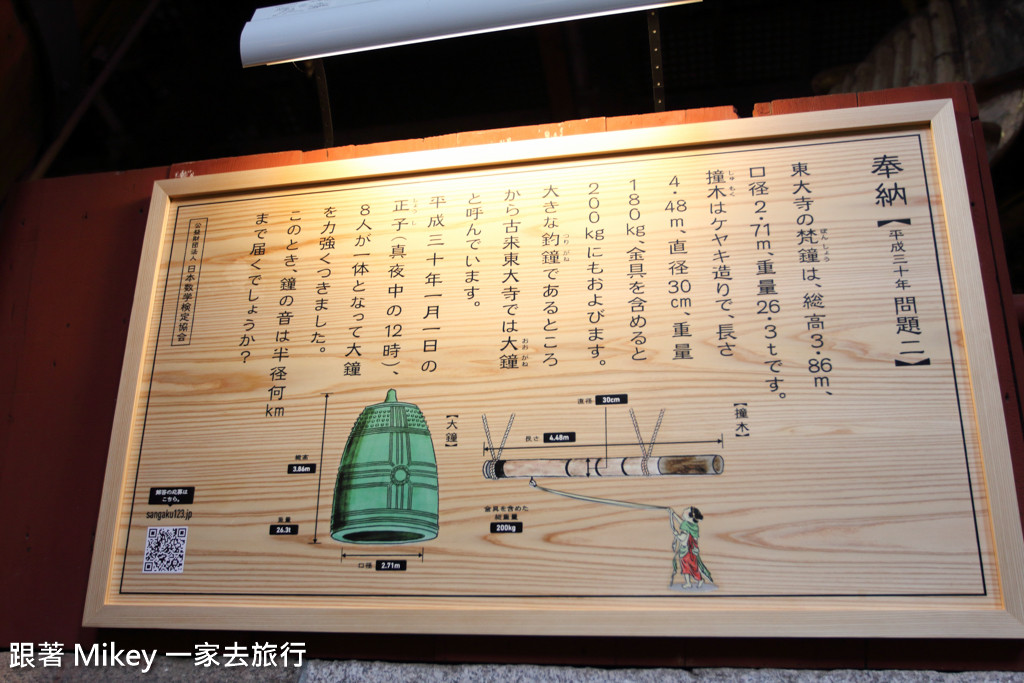 奉納【平成三十年 問題二】
東大寺の梵鐘は、総高3・86m、
口径2・71m、重量26・3tです。
撞木はケヤキ造りで、長さ
4・48m、直径30cm、重量
180kg、金具を含めると
200kgにもおよびます。
大きな釣鐘であるところ
から古来東大寺では大鐘
と呼んでいます。
平成三十年一月一日の
正子(真夜中の12時)、
8人が一体となって大鐘
を力強くつきました。
このとき、鐘の音は半径何km
まで届くでしょうか?
公益財団法人 日本数学検定協会
【撞木】
直径 30cm
長さ 4.48m
金具を含めた
総重量
200kg
【大鐘】
総高
3.86m
重量
26.3t
口径 2.71m
解答の応募は
こちら。
sangaku123.jp
跟著 Mikey 一家去旅行